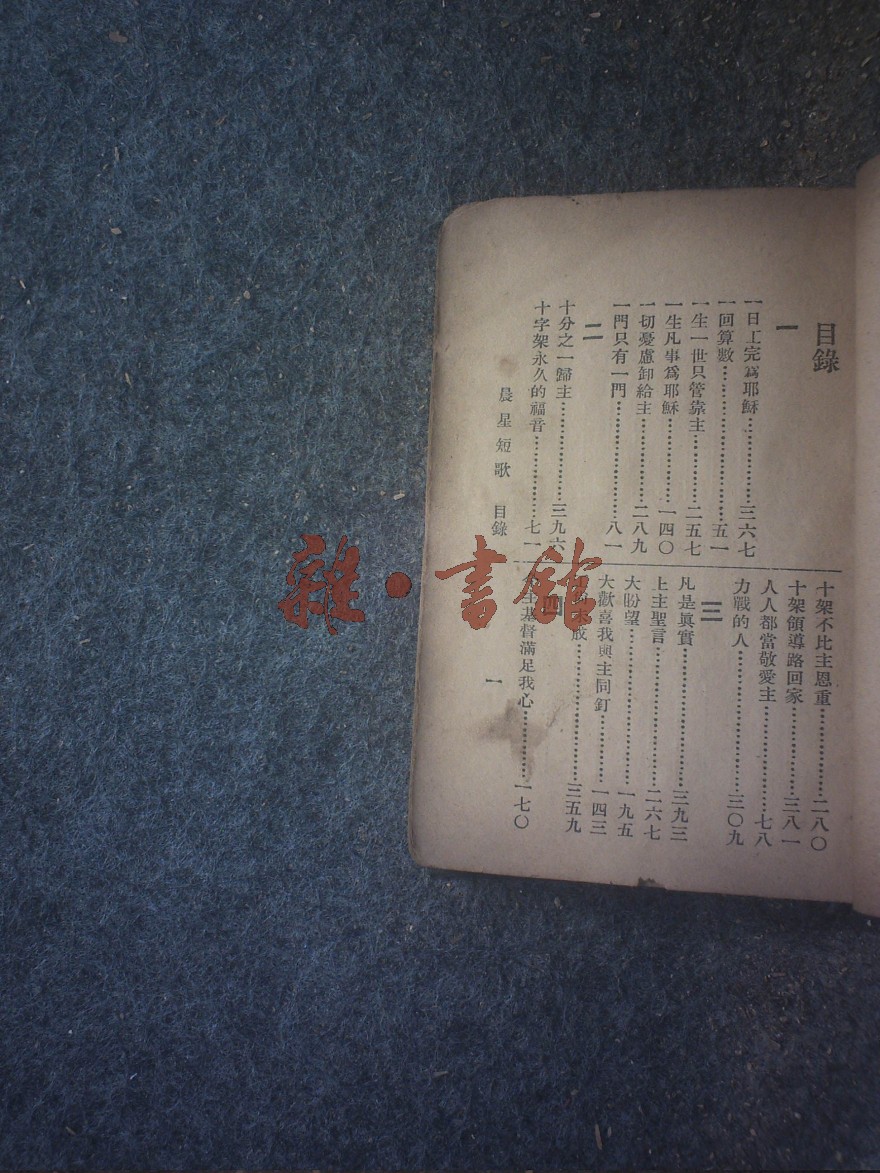 目錄
一
一日工完爲耶穌 三六七
一回算數 五一
一生一世只管靠主 二五七
一生凡事爲耶穌 一四〇
一切憂慮卸給主 二八九
一門只有一門 八一
二
十分之一歸主 三九六
十字架永久的福音 七一
十架不比主恩重 二八〇
十架領導路回家 三八一
人人都當敬愛主 七八
力戰的人 三〇九
三
凡是眞實 三九三
上主聖言 二六七
大盼望 一九五
大歡喜我與主同釘 一四三
三五九
四
基督滿足我心 一七〇
晨星短歌 目錄 一
雜·書館